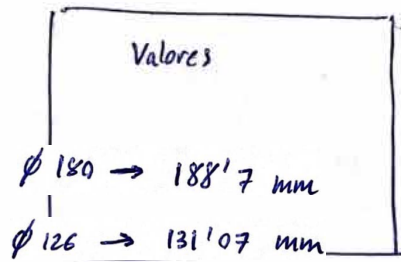 Valores
ϕ 180 → 188'7 mm
ϕ 126 → 131'07 mm